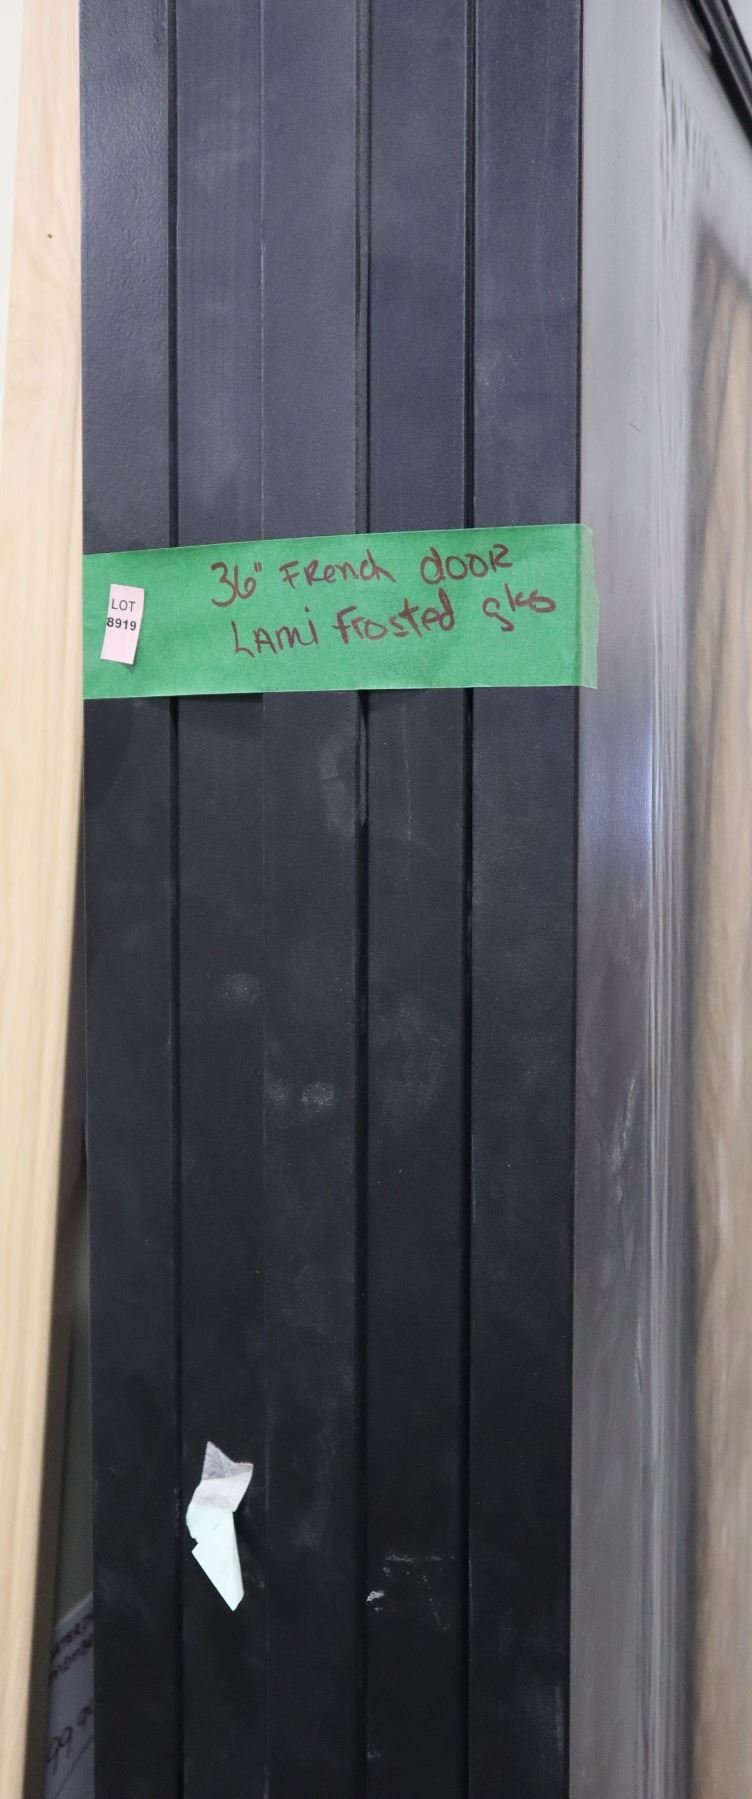 36" FRench dooR
LAmi Frosted gks
LOT
8919